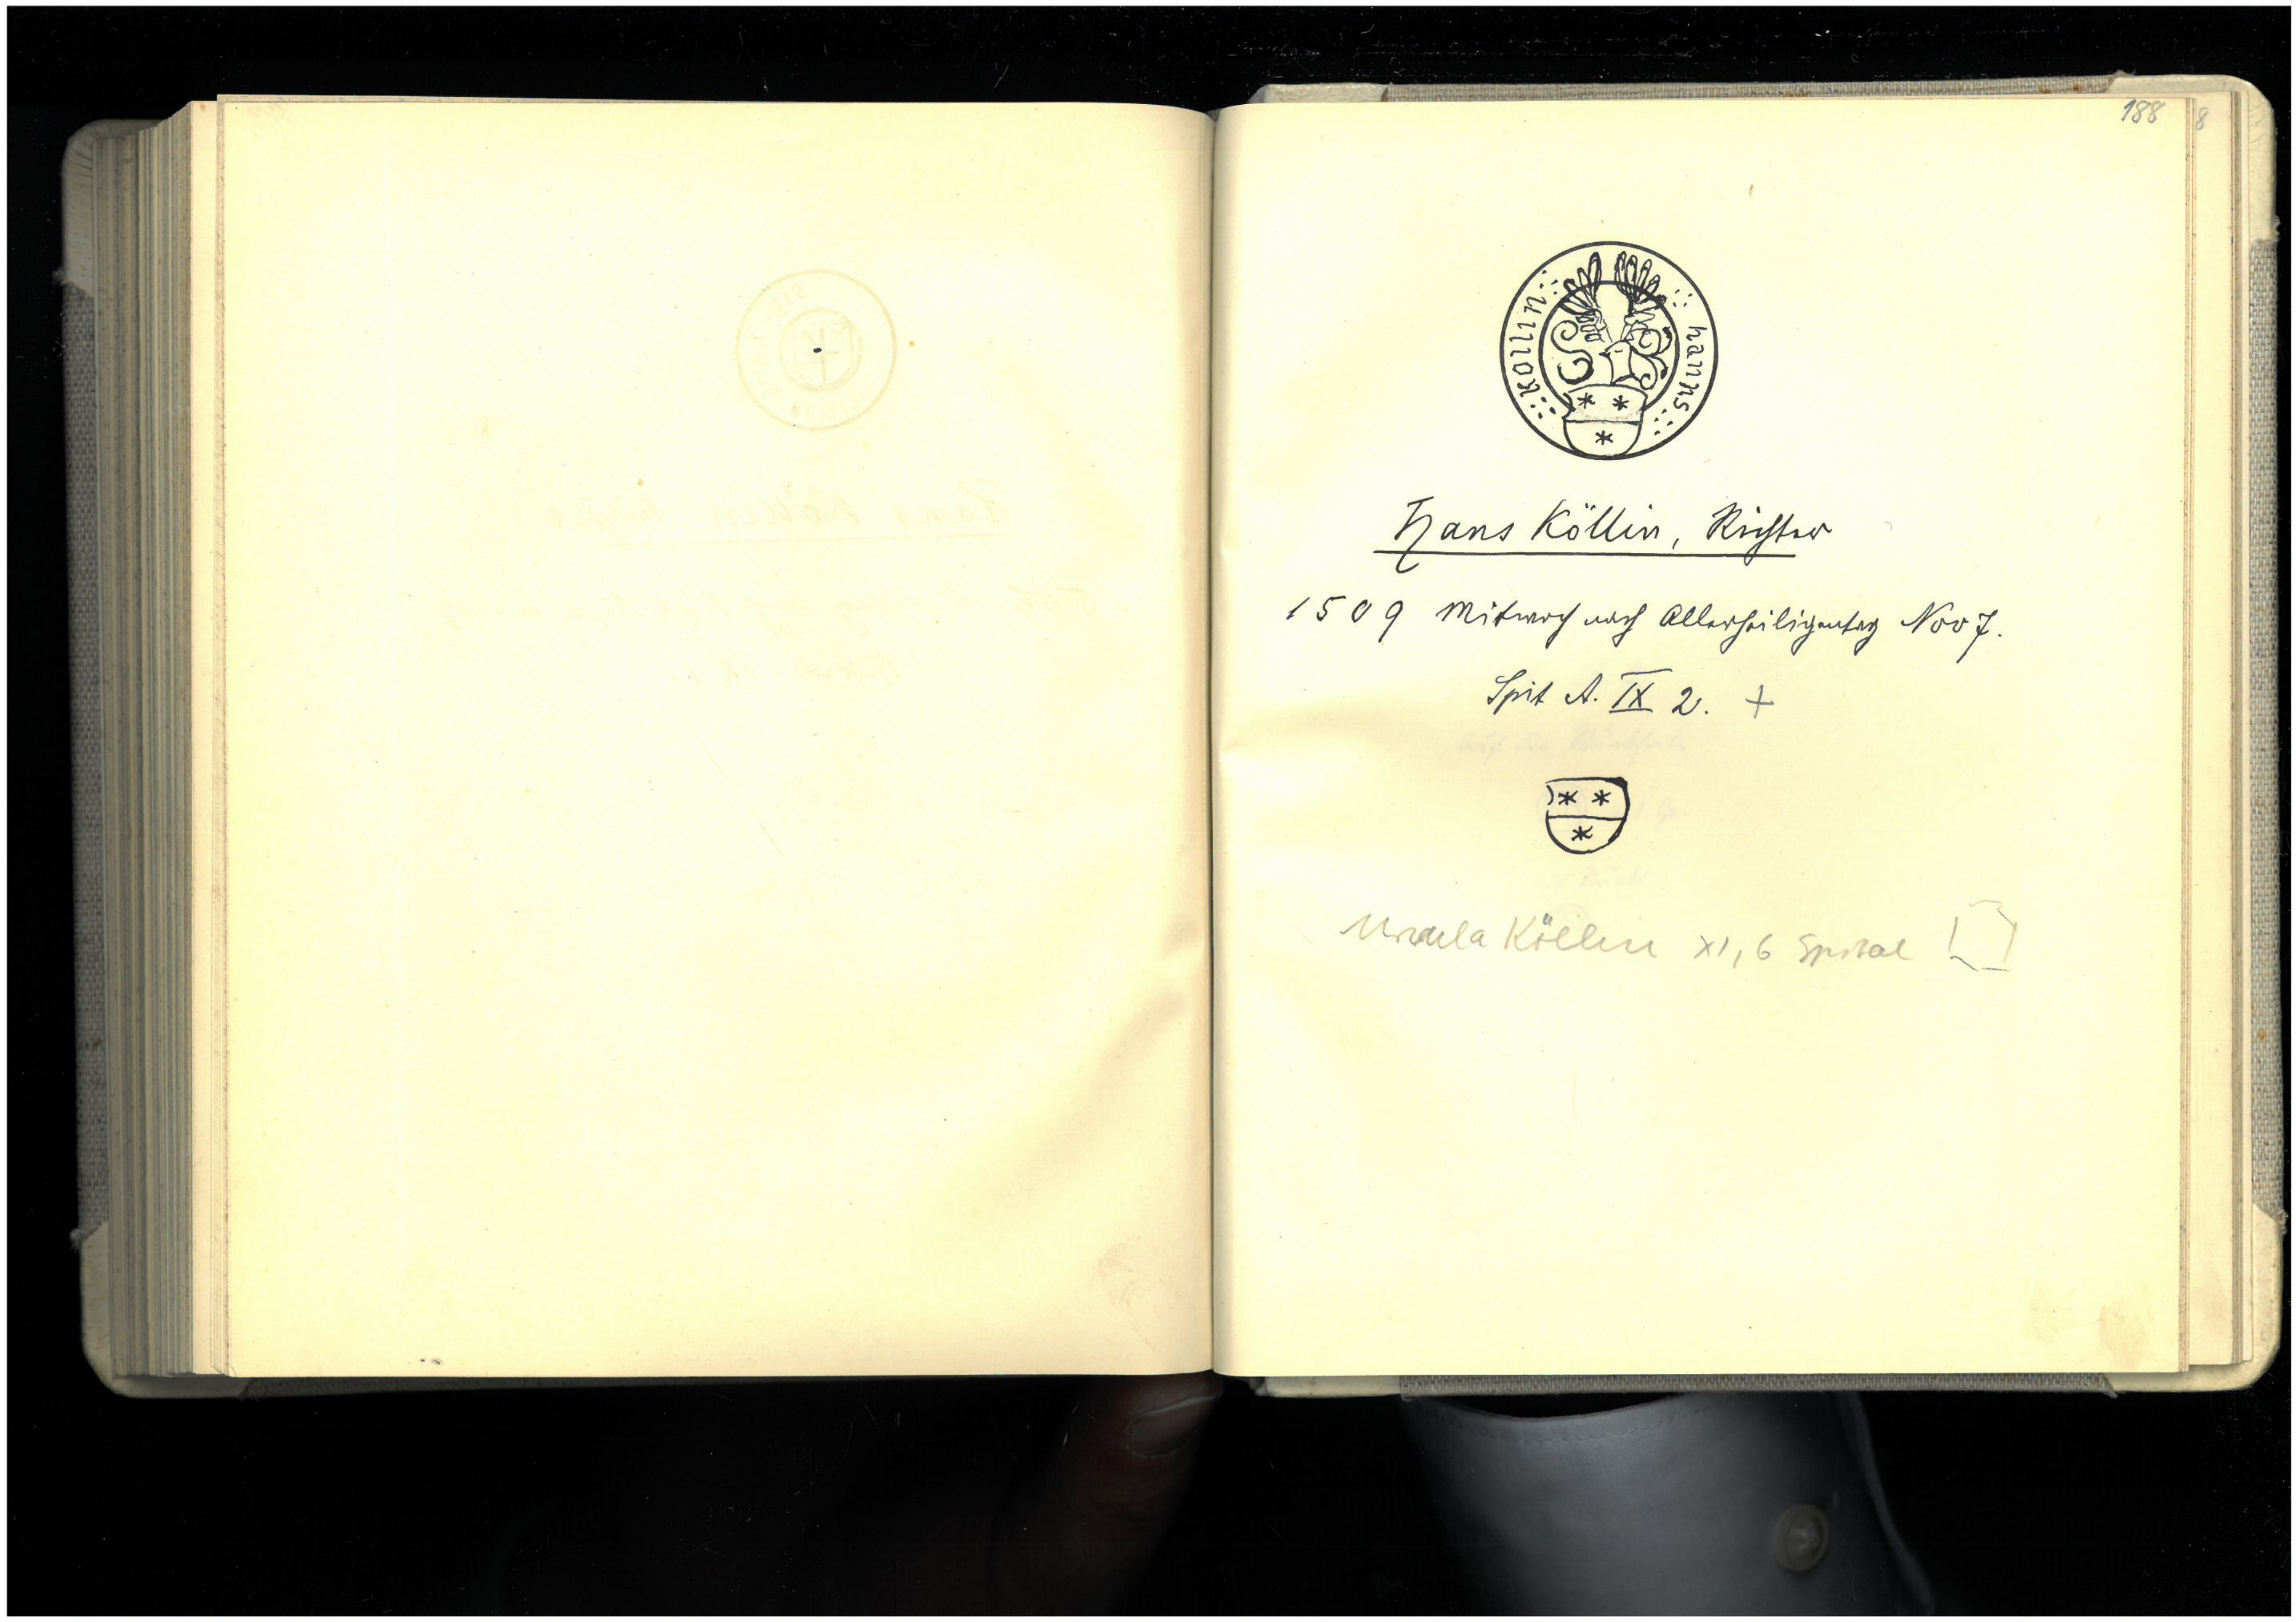 188
8
hanns
kollin
Hans Köllin, Richter
1509 Mitwoch nach Allerheiligentag Nov 7.
Spit A. IX 2. +
Ursula Köllin XI, 6 Spital [ ]